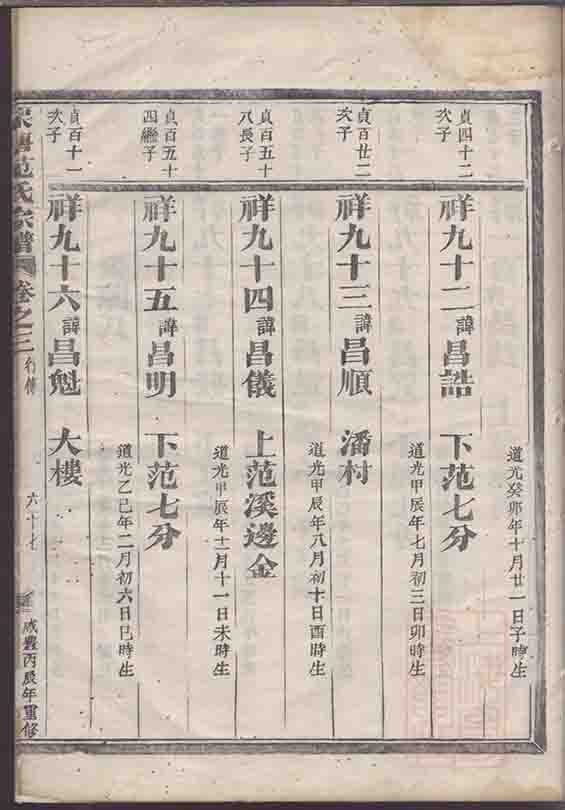 道光癸卯年十月廿一日子時生
貞四十二
次子
祥九十二 諱昌誥 下范七分
道光甲辰年七月初三日卯時生
貞百廿二
次子
祥九十三 諱昌順 潘村
道光甲辰年八月初十日酉時生
貞百五十
八長子
祥九十四 諱昌儀 上范溪邊金
道光甲辰年十二月十一日未時生
貞百五十
四繼子
祥九十五 諱昌明 下范七分
道光乙巳年二月初六日巳時生
貞百十一
次子
祥九十六 諱昌魁 大樓
范氏宗譜 卷之三 行傳 六十七 咸豐丙辰年重修